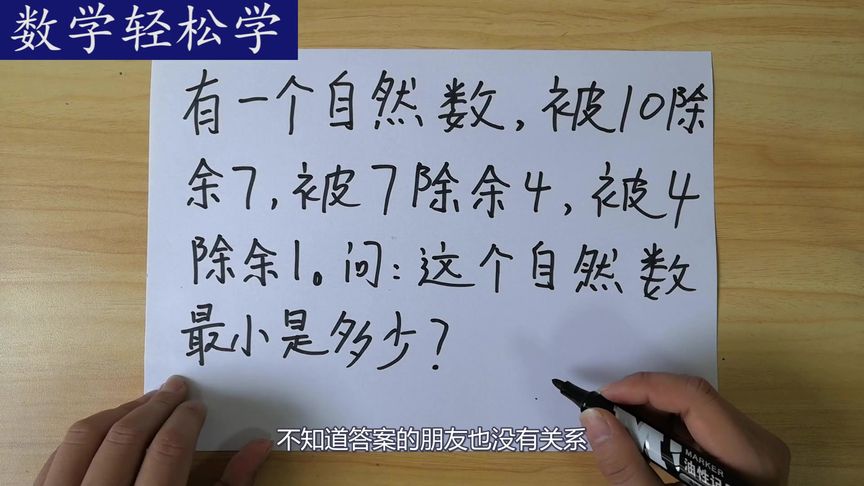 数学轻松学
有一个自然数,被10除
余7,被7除余4,被4
除余1。问:这个自然数
最小是多少?
不知道答案的朋友也没有关系
MARKER
油性记